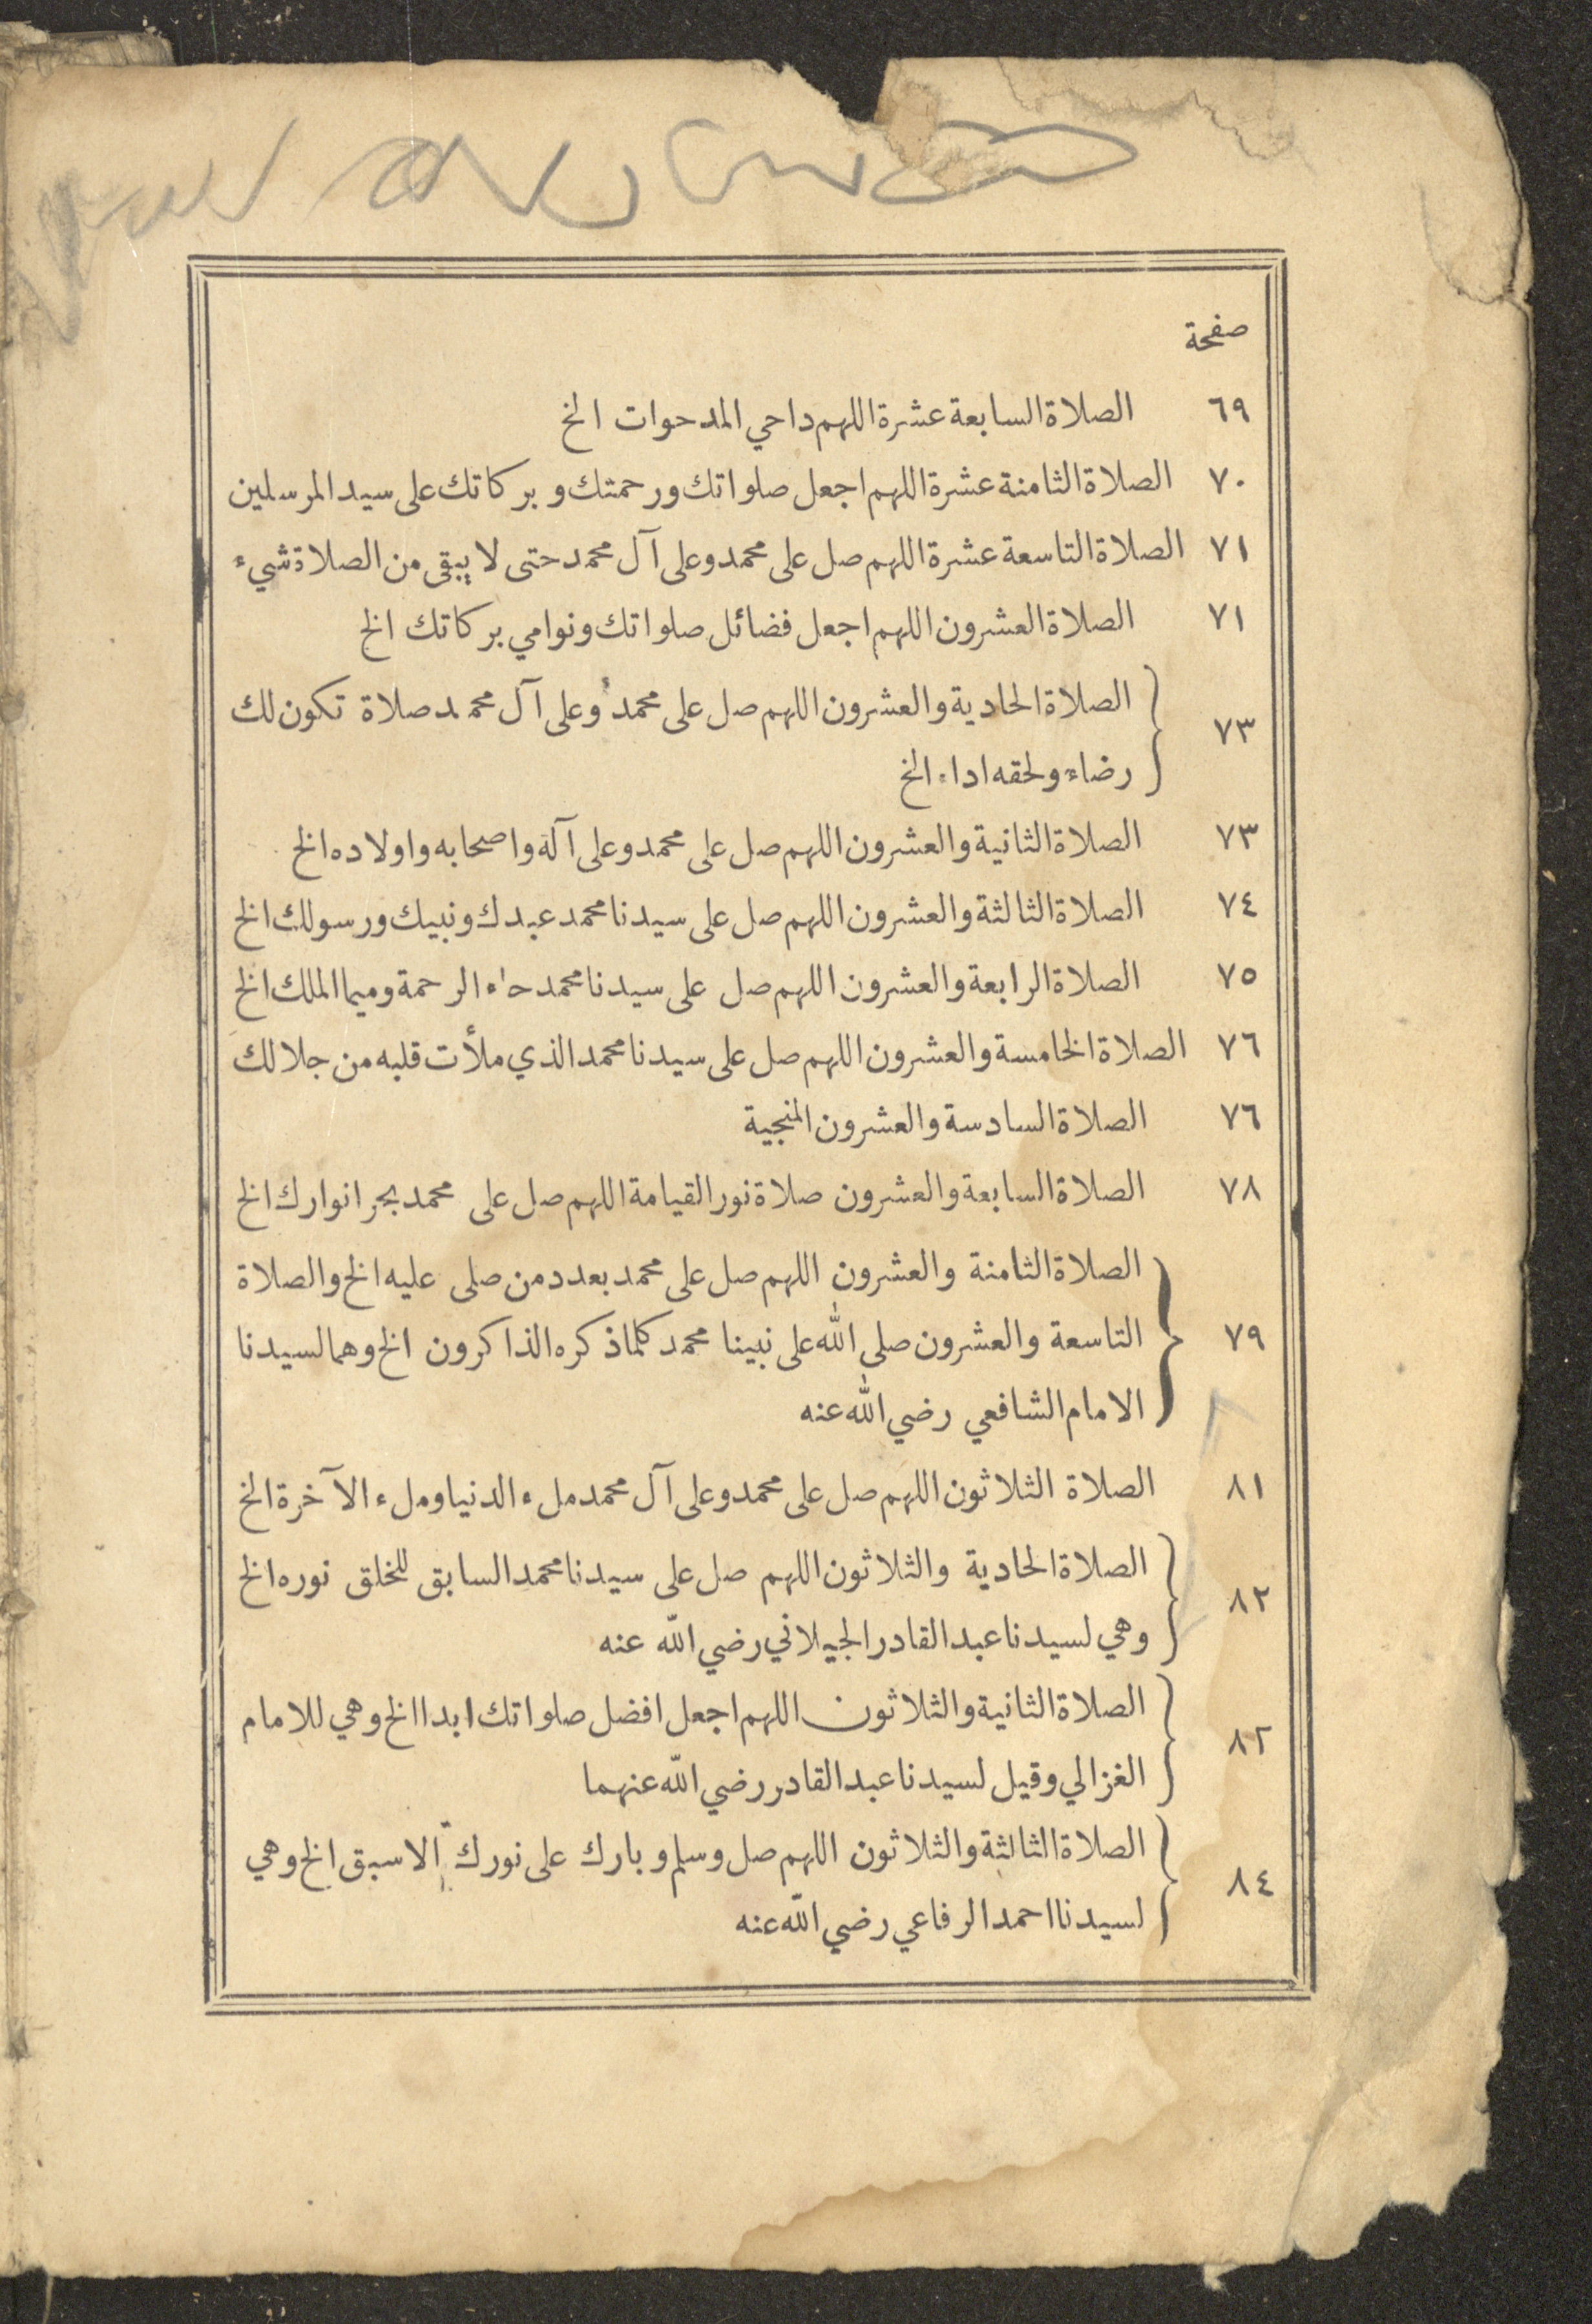 صفحة
٦٩ الصلاة السابعة عشرة اللهم داحي المدحوات الخ
٧٠ الصلاة الثامنة عشرة اللهم اجعل صلواتك ورحمتك وبركاتك على سيد المرسلين
٧١ الصلاة التاسعة عشرة اللهم صل على محمد وعلى آل محمد حتى لا يبقى من الصلاة شيء
٧١ الصلاة العشرون اللهم اجعل فضائل صلواتك ونوامي بركاتك الخ
٧٣ الصلاة الحادية والعشرون اللهم صل على محمد وعلى آل محمد صلاة تكون لك
رضاء ولحقه اداء الخ
٧٣ الصلاة الثانية والعشرون اللهم صل على محمد وعلى آله واصحابه واولاده الخ
٧٤ الصلاة الثالثة والعشرون اللهم صل على سيدنا محمد عبدك ونبيك ورسولك الخ
٧٥ الصلاة الرابعة والعشرون اللهم صل على سيدنا محمد حاء الرحمة وميما الملك الخ
٧٦ الصلاة الخامسة والعشرون اللهم صل على سيدنا محمد الذي ملأت قلبه من جلالك
٧٦ الصلاة السادسة والعشرون المنجية
٧٨ الصلاة السابعة والعشرون صلاة نور القيامة اللهم صل على محمد بحر انوارك الخ
الصلاة الثامنة والعشرون اللهم صل على محمد بعدد من صلى عليه الخ والصلاة
٧٩ التاسعة والعشرون صلى الله على نبينا محمد كلما ذكره الذاكرون الخ وهما لسيدنا
الامام الشافعي رضي الله عنه
٨١ الصلاة الثلاثون اللهم صل على محمد وعلى آل محمد ملء الدنيا وملء الآخرة الخ
٨٢ الصلاة الحادية والثلاثون اللهم صل على سيدنا محمد السابق للخلق نوره الخ
وهي لسيدنا عبد القادر الجيلاني رضي الله عنه
٨٢ الصلاة الثانية والثلاثون اللهم اجعل افضل صلواتك ابدا الخ وهي للامام
الغزالي وقيل لسيدنا عبد القادر رضي الله عنهما
٨٤ الصلاة الثالثة والثلاثون اللهم صل وسلم وبارك على نورك الاسبق الخ وهي
لسيدنا احمد الرفاعي رضي الله عنه